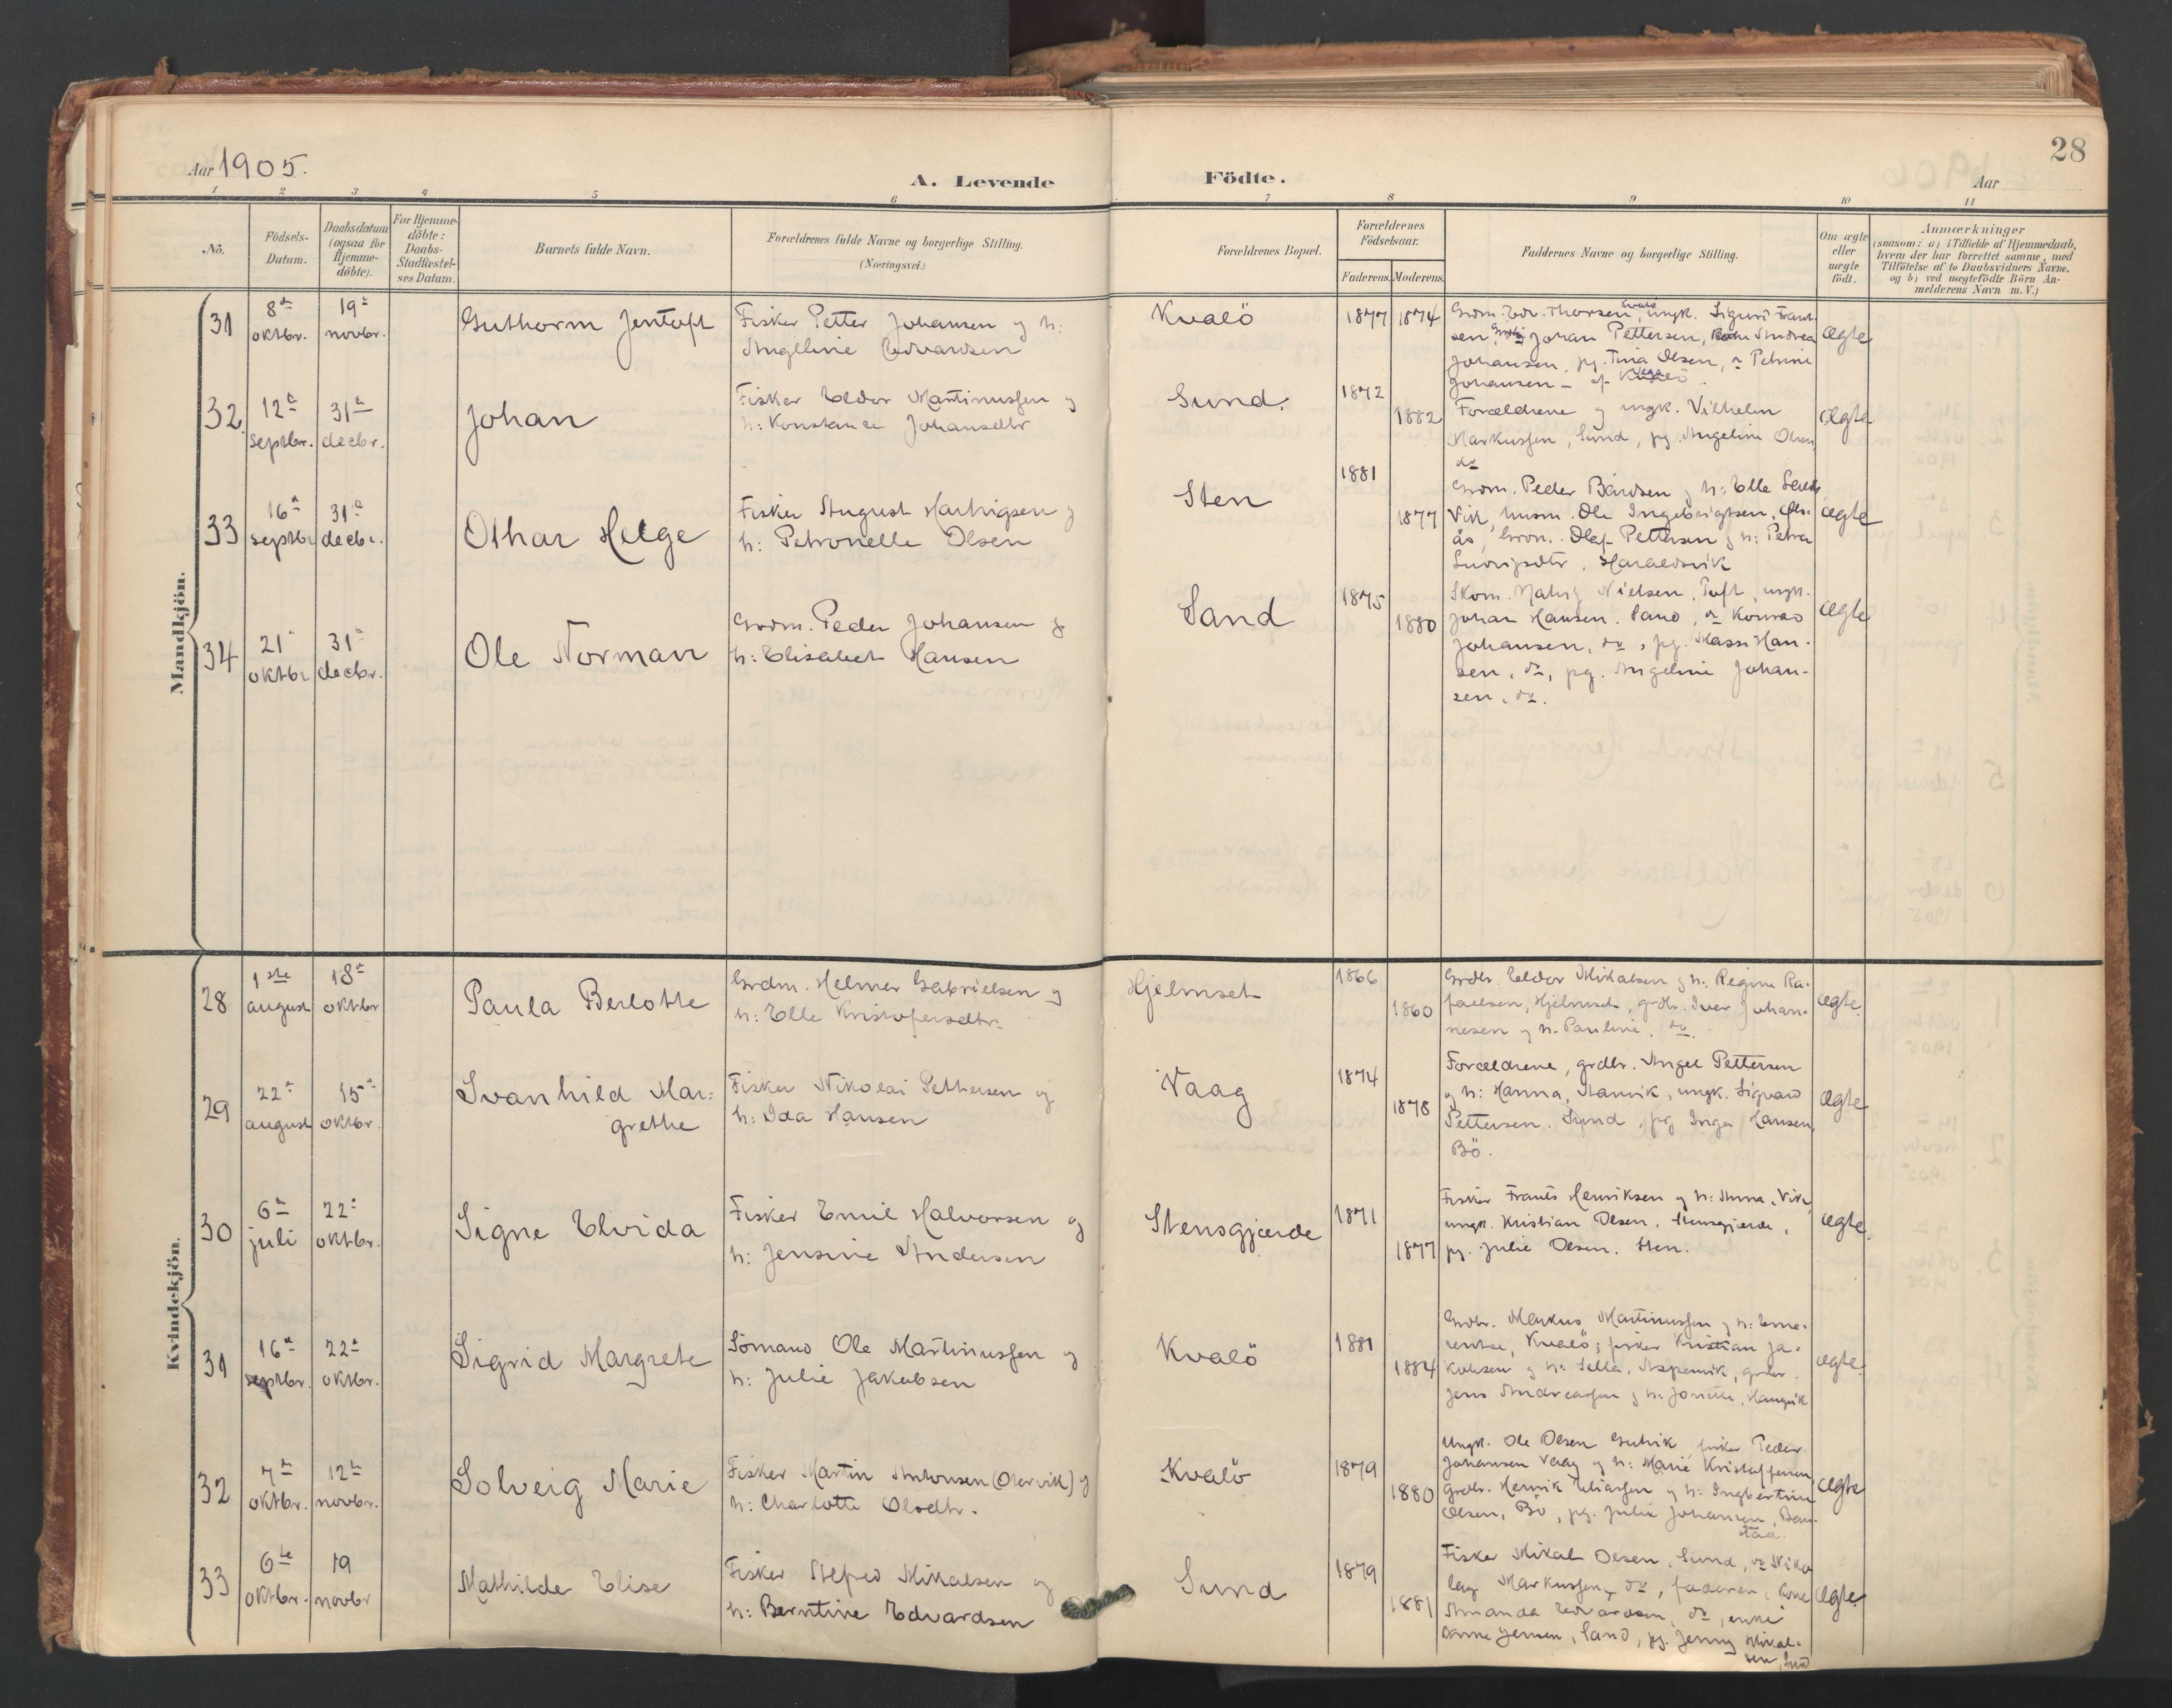 28
Aar 1905.
A. Levende
Födte.
Aar
1 2 3 4 5 6 7 8 9 10 11
No.
Födsels-
Datum.
Daabsdatum
(ogsaa for
Hjemme-
döbte).
For Hjemme-
döbte:
Daabs-
Stadfæstel-
ses Datum.
Barnets fulde Navn.
Forældrenes fulde Navne og borgerlige Stilling.
(Næringsvei.)
Forældrenes Bopæl.
Forældrenes
Födselsaar.
Faderens. Moderens.
Faddernes Navne og borgerlige Stilling.
Om ægte
eller
uægte
födt.
Anmærkninger
(saasom: a) i Tilfælde af Hjemmedaab,
hvem der har forrettet samme, med
Tilföielse af to Daabsvidners Navne,
og b) ved uægtefödte Börn An-
melderens Navn m. V.)
Mandkjön.
31
8de
oktbr.
19de
novbr.
Guthorm Jentoft
Fisker Petter Johansen og h:
Angelline Edvardsen
Kvalö
1877 1874
Grdm. Edv. Thorsen, Kvalö, ungk. Sigurd Frant-
sen, Johan Pettersen, Andrea
Johansen, pg. Tina Olsen, Petrine
Johansen - af
ægte
32
12te
septbr.
31te
decbr.
Johan
Fisker Eldor Martinussen og
h: Konstance Johansdtr
Sund.
1872
1882
Forældrene og ungk. Vilhelm
Markussen, Sund, pg. Angeline Olsen,
do
ægte
33
16de
septbr
31te
decbr.
Othar Helge
Fisker August Hartvigsen og
h: Petronelle Olsen
Sten
1881
1877
Grdm. Peder Bårdsen og h: Elle
Vik, husm. Ole Ingebrigtsen,
ås, Grdm. Olaf Pettersen og h: Petra
Haraldsvik
ægte
34
21de
oktbr
31te
decbr.
Ole Norman
Grdm. Peder Johansen og
h: Elisabet Hansen
Sand
1875
1880
Nielsen, Toft, ungk.
Johan Hansen, Sand, do Konrad
Johansen, do, pg. Han-
sen, do, pg. Angeline Johan-
sen, do.
ægte
Kvindekjön.
28
1ste
august
18de
oktbr
Paula Berlotte
Grdm. Helmer Gabrielsen og
h: Elle Kristofersdtr.
Hjelmset
1866
1860
Grdbr. Eldor Mikalsen og h: Regine Ra-
faelsen, Hjelmset, grdbr. Iver Johan-
nesen og h. Pauline, do.
ægte.
29
22de
august
15de
oktbr.
Svanhild Mar-
grethe
Fisker Nikolai Pettersen og
h: Ida Hansen
Vaag
1874
1878
Forældrene, grdbr. Angel Pettersen
og h: Hanna, ungk. Sigvard
Pettersen, Sund, pg Inga Hansen,
Bö.
ægte
30
6te
juli
22de
oktbr.
Signe Elvida
Fisker Emil Halvorsen og
h: Jensine Andersen
Stensgjærde
1871
1877
Fisker Frants Henriksen og h: Anna, Vik,
ungk. Kristian Olsen, Stensgjærde,
pg. Julie Olsen, Sten.
ægte.
31
16de
septbr.
22de
oktbr.
Sigrid Margrete
Sömand Ole Martinussen og
h: Julie Jakobsen
Kvalö
1881
1884
Grdbr. Markus Martinussen og h: Eme-
rentse, Kvalö; fisker Kristian Ja-
kobsen og h: Sella, grdbr.
Jens Andreassen og h: Jonette,
ægte.
32
7de
oktbr.
12te
novbr.
Solveig Marie
Fisker Martin Antonsen (Olervik) og
h: Charlotte Olsdtr.
Kvalö
1879
1880
Ungk. Ole Olsen, fisker Peder
Johansen Vaag og h: Marie Kristoffersen,
Grdbr. Henrik Eliassen og h: Ingbertine
Olsen, Bö, pg. Julie Johansen,
ægte
33
6te
oktbr.
19
novbr
Mathilde Elise
Fisker Alfred Mikalsen og
h: Berntine Edvardsen
Sund
1879
1881
Fisker Mikal Olsen, Sund, do Niko-
lay Markussen, do, faderen, kone
Amanda Edvardsen, do, enke
Anne Jensen, Sand, pg. Jenny Mikal-
sen, Sund
ægte.